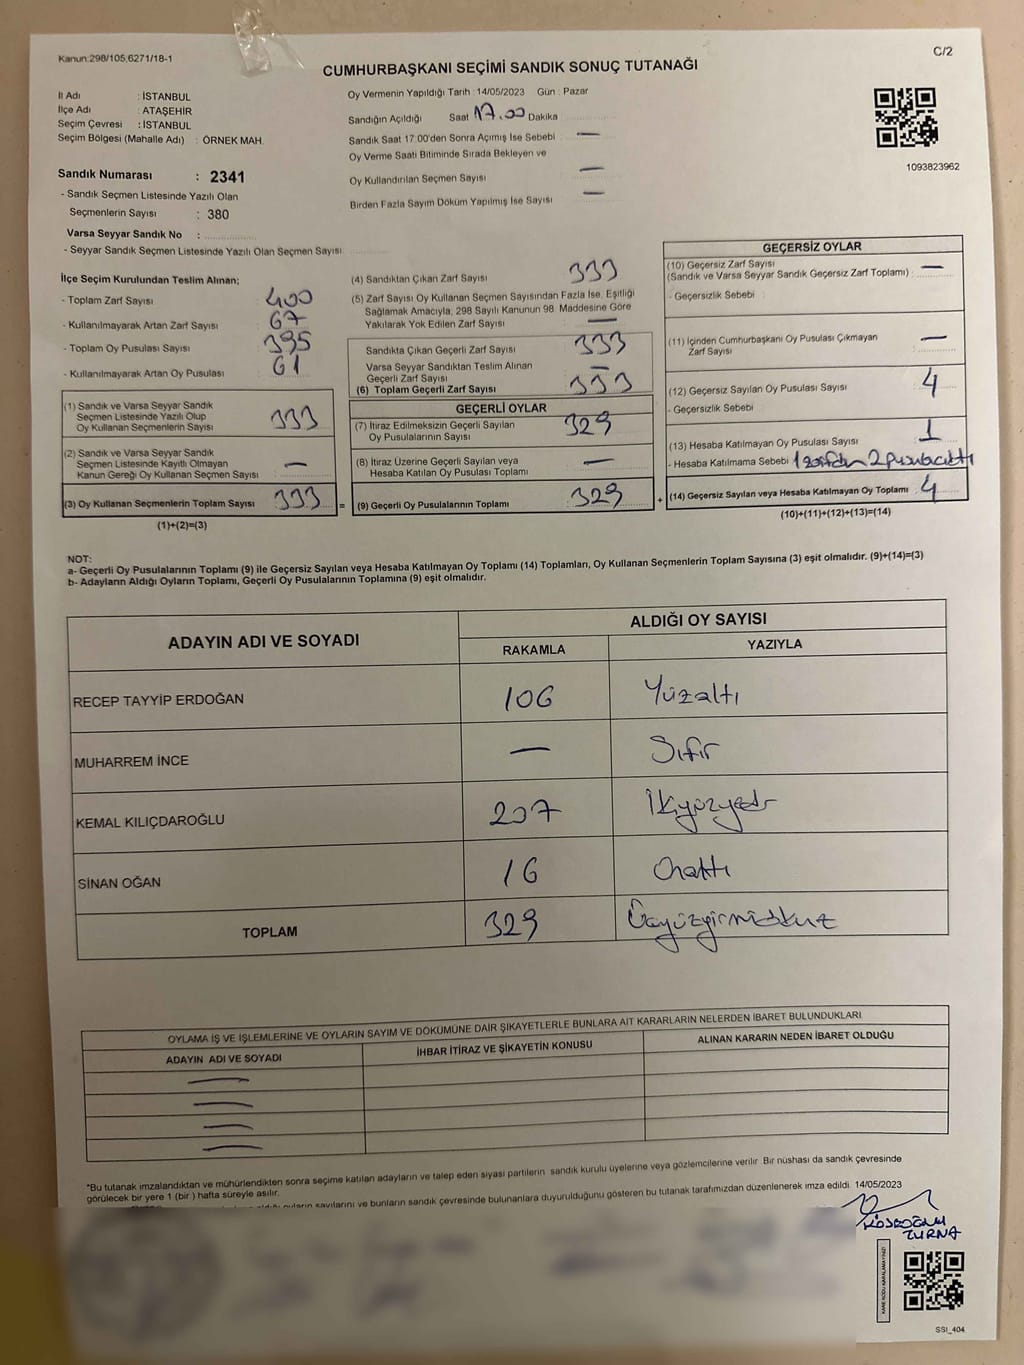 Kanun:298/105,6271/18-1
C/2
CUMHURBAŞKANI SEÇİMİ SANDIK SONUÇ TUTANAĞI
İl Adı : İSTANBUL
İlçe Adı : ATAŞEHİR
Seçim Çevresi : İSTANBUL
Seçim Bölgesi (Mahalle Adı) : ÖRNEK MAH.
Sandık Numarası : 2341
- Sandık Seçmen Listesinde Yazılı Olan
Seçmenlerin Sayısı : 380
Varsa Seyyar Sandık No :
- Seyyar Sandık Seçmen Listesinde Yazılı Olan Seçmen Sayısı
Oy Vermenin Yapıldığı Tarih : 14/05/2023 Gün : Pazar
Sandığın Açıldığı Saat 17.00 Dakika
Sandık Saat 17:00'den Sonra Açımış İse Sebebi —
Oy Verme Saati Bitiminde Sırada Bekleyen ve
Oy Kullandırılan Seçmen Sayısı —
Birden Fazla Sayım Döküm Yapılmış İse Sayısı —
1093823962
İlçe Seçim Kurulundan Teslim Alınan;
- Toplam Zarf Sayısı : 400
- Kullanılmayarak Artan Zarf Sayısı : 67
- Toplam Oy Pusulası Sayısı : 395
- Kullanılmayarak Artan Oy Pusulası : 61
(1) Sandık ve Varsa Seyyar Sandık
Seçmen Listesinde Yazılı Olup
Oy Kullanan Seçmenlerin Sayısı : 333
(2) Sandık ve Varsa Seyyar Sandık
Seçmen Listesinde Kayıtlı Olmayan
Kanun Gereği Oy Kullanan Seçmen Sayısı : —
(3) Oy Kullanan Seçmenlerin Toplam Sayısı : 333
(1)+(2)=(3)
(4) Sandıktan Çıkan Zarf Sayısı 333
(5) Zarf Sayısı Oy Kullanan Seçmen Sayısından Fazla İse, Eşitliği
Sağlamak Amacıyla, 298 Sayılı Kanunun 98. Maddesine Göre
Yakılarak Yok Edilen Zarf Sayısı —
Sandıkta Çıkan Geçerli Zarf Sayısı 333
Varsa Seyyar Sandıktan Teslim Alınan
Geçerli Zarf Sayısı —
(6) Toplam Geçerli Zarf Sayısı 333
GEÇERLİ OYLAR
(7) İtiraz Edilmeksizin Geçerli Sayılan
Oy Pusulalarının Sayısı 329
(8) İtiraz Üzerine Geçerli Sayılan veya
Hesaba Katılan Oy Pusulası Toplamı —
= (9) Geçerli Oy Pusulalarının Toplamı 329 +
GEÇERSİZ OYLAR
(10) Geçersiz Zarf Sayısı
(Sandık ve Varsa Seyyar Sandık Geçersiz Zarf Toplamı) : —
- Geçersizlik Sebebi :
(11) İçinden Cumhurbaşkanı Oy Pusulası Çıkmayan
Zarf Sayısı : —
(12) Geçersiz Sayılan Oy Pusulası Sayısı : 4
- Geçersizlik Sebebi :
(13) Hesaba Katılmayan Oy Pusulası Sayısı : 1
- Hesaba Katılmama Sebebi : 1 zarfdan 2 pusula çıktı
(14) Geçersiz Sayılan veya Hesaba Katılmayan Oy Toplamı : 4
(10)+(11)+(12)+(13)=(14)
NOT:
a- Geçerli Oy Pusulalarının Toplamı (9) ile Geçersiz Sayılan veya Hesaba Katılmayan Oy Toplamı (14) Toplamları, Oy Kullanan Seçmenlerin Toplam Sayısına (3) eşit olmalıdır. (9)+(14)=(3)
b- Adayların Aldığı Oyların Toplamı, Geçerli Oy Pusulalarının Toplamına (9) eşit olmalıdır.
ADAYIN ADI VE SOYADI
ALDIĞI OY SAYISI
RAKAMLA YAZIYLA
RECEP TAYYİP ERDOĞAN 106 Yüzaltı
MUHARREM İNCE — Sıfır
KEMAL KILIÇDAROĞLU 207 İkiyüzyedi
SİNAN OĞAN 16 Onaltı
TOPLAM 329 Üçyüzyirmidokuz
OYLAMA İŞ VE İŞLEMLERİNE VE OYLARIN SAYIM VE DÖKÜMÜNE DAİR ŞİKAYETLERLE BUNLARA AİT KARARLARIN NELERDEN İBARET BULUNDUKLARI
ADAYIN ADI VE SOYADI İHBAR İTİRAZ VE ŞİKAYETİN KONUSU ALINAN KARARIN NEDEN İBARET OLDUĞU
—
—
—
—
"Bu tutanak imzalandıktan ve mühürlendikten sonra seçime katılan adayların ve talep eden siyasi partilerin sandık kurulu üyelerine veya gözlemcilerine verilir. Bir nüshası da sandık çevresinde
görülecek bir yere 1 (bir ) hafta süreyle asılır.
oyların sayılarını ve bunların sandık çevresinde bulunanlara duyurulduğunu gösteren bu tutanak tarafımızdan düzenlenerek imza edildi. 14/05/2023
ZURNA
KARE KODU KARALAMAYINIZ!
SSI_404